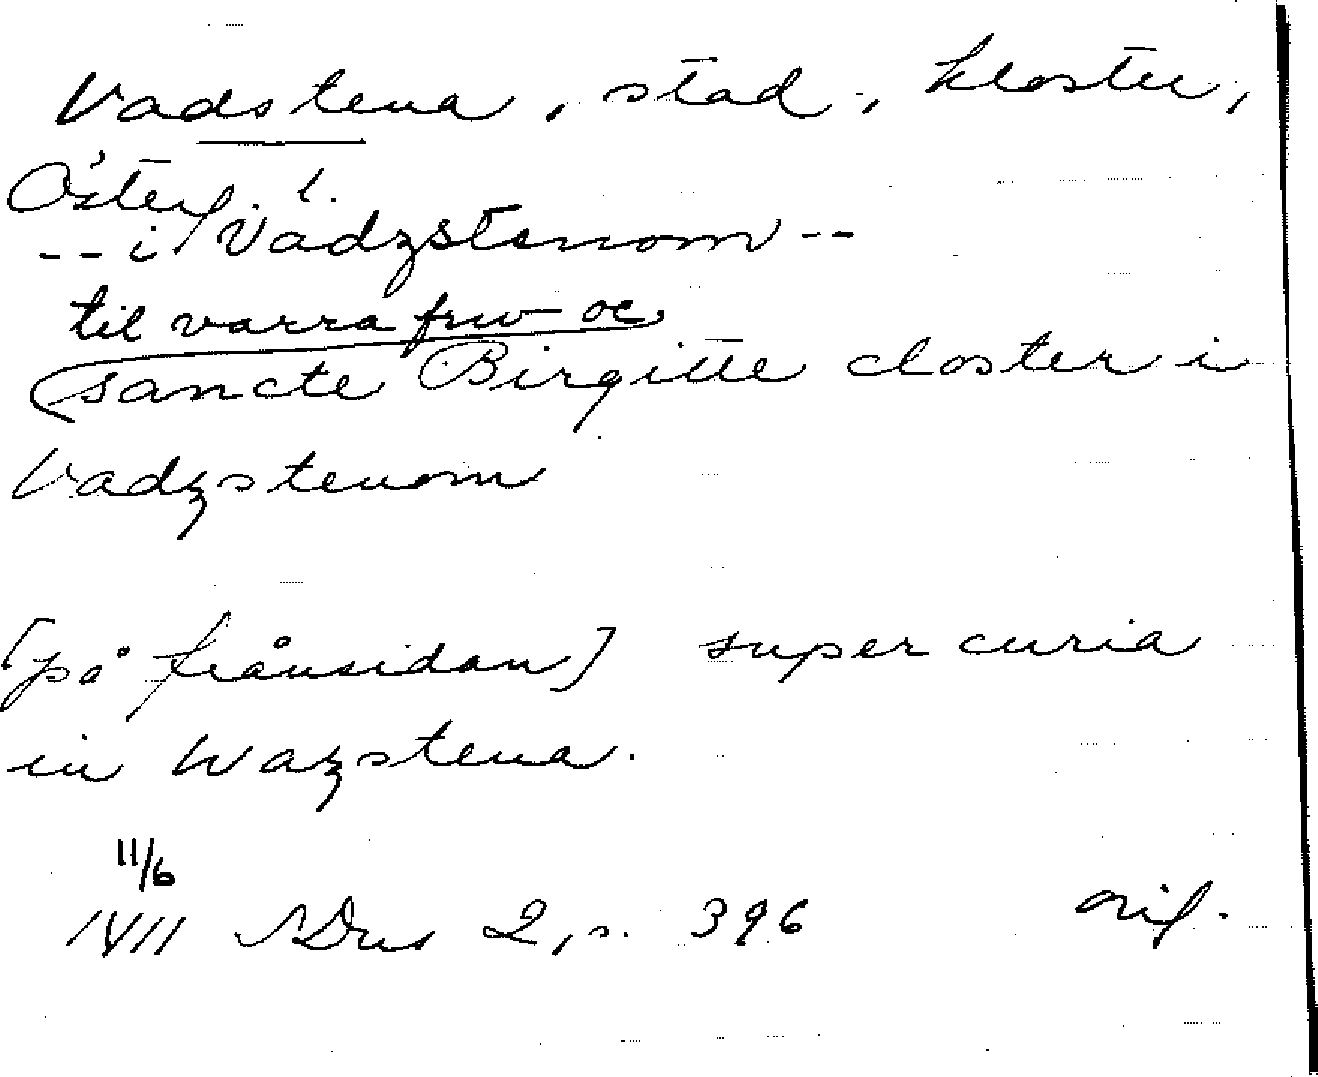 Vadstena, stad, kloster,
Österg. l.
-- i Vadzstenom --
til varra frw oc
sancte Birgitte closter i
Vadzstenom
[på frånsidan] super curia
in Wazstena.
11/6
1411 SDns 2, s. 396 orig.